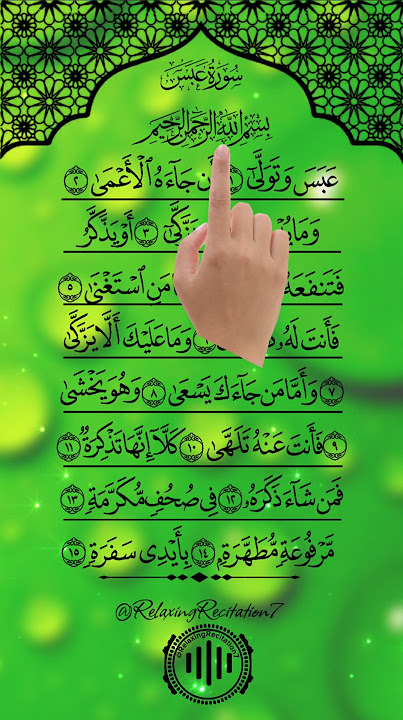 سُورَةُ عَبَسَ
بِسْمِ اللَّهِ الرَّحْمَٰنِ الرَّحِيمِ
عَبَسَ وَتَوَلَّىٰٓ أَن جَآءَهُ ٱلْأَعْمَىٰ ٢
وَمَا زَّكَّىٰٓ ٣ أَوْ يَذَّكَّرُ
فَتَنفَعَهُ مَنِ ٱسْتَغْنَىٰ ٥
فَأَنتَ لَهُۥ وَمَا عَلَيْكَ أَلَّا يَزَّكَّىٰ
٧ وَأَمَّا مَن جَآءَكَ يَسْعَىٰ ٨ وَهُوَ يَخْشَىٰ
٩ فَأَنتَ عَنْهُ تَلَهَّىٰ ١٠ كَلَّآ إِنَّهَا تَذْكِرَةٌ ١١
فَمَن شَآءَ ذَكَرَهُۥ ١٢ فِى صُحُفٍ مُّكَرَّمَةٍ ١٣
مَّرْفُوعَةٍ مُّطَهَّرَةٍۭ ١٤ بِأَيْدِى سَفَرَةٍ ١٥
@RelaxingRecitation7
@RelaxingRecitation7